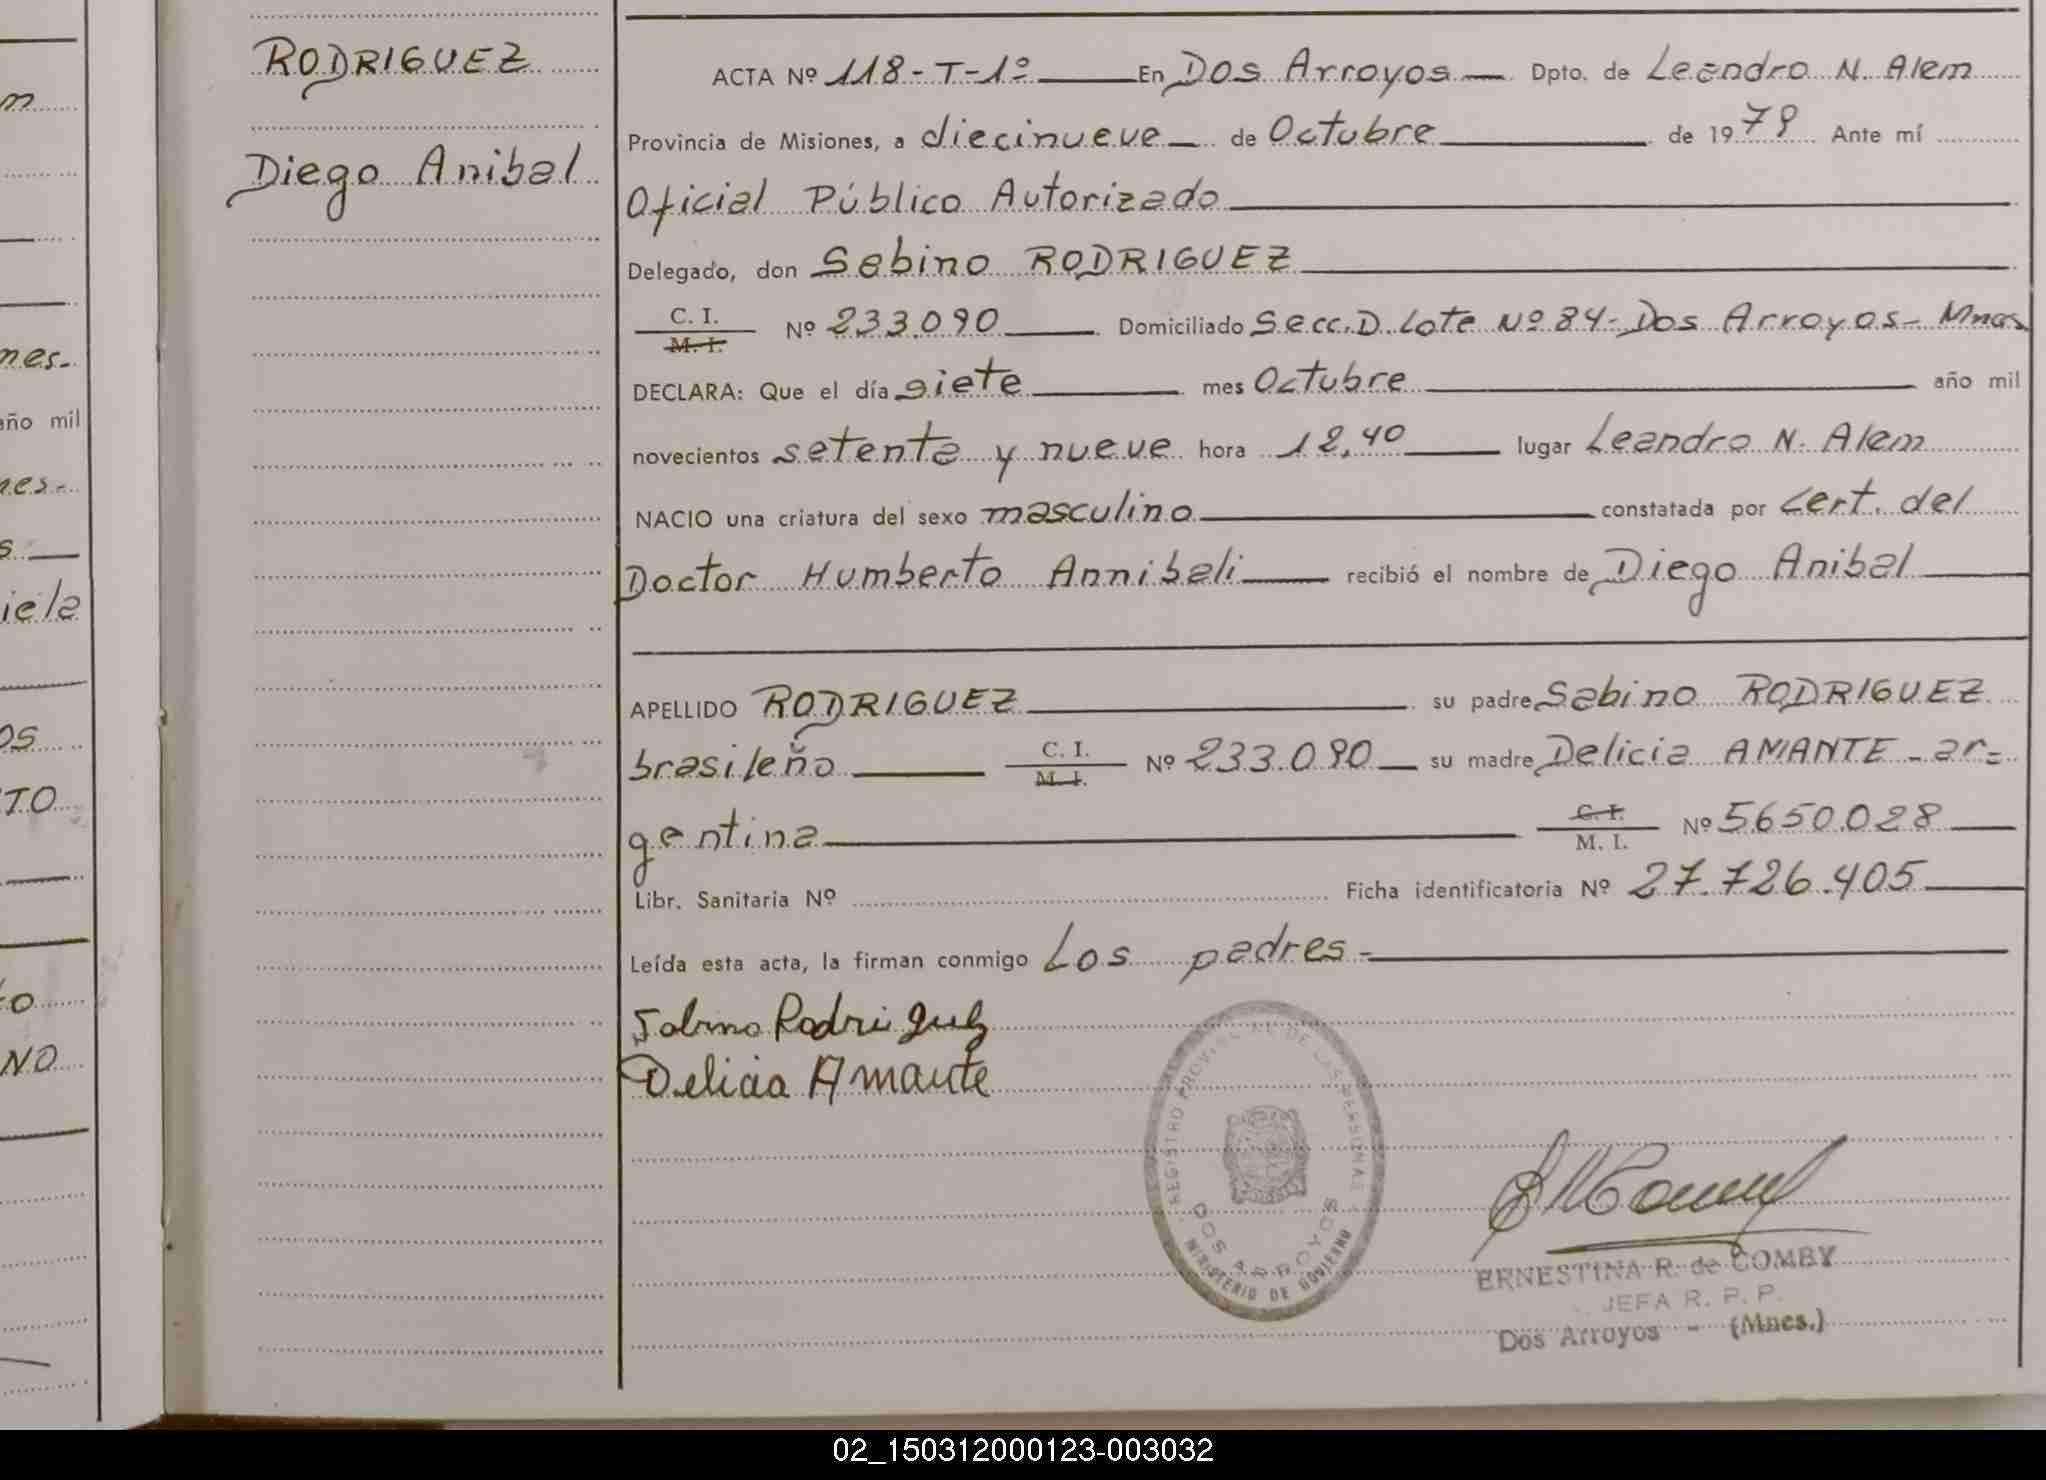 m
mes.
año mil
nes-
s
iela
OS
TO
to
NO
RODRIGUEZ
Diego Anibal
ACTA Nº 118-T-1º En Dos Arroyos Dpto. de Leandro N. Alem
Provincia de Misiones, a diecinueve de Octubre de 1979 Ante mí
Oficial Público Autorizado
Delegado, don Sabino RODRIGUEZ
C. I.
M. I. Nº 233.090 Domiciliado Secc. D. Lote Nº 84- Dos Arroyos- Mnes
DECLARA: Que el día siete mes Octubre año mil
novecientos setenta y nueve hora 12,40 lugar Leandro N. Alem
NACIO una criatura del sexo masculino constatada por Cert. del
Doctor Humberto Annibali recibió el nombre de Diego Anibal
APELLIDO RODRIGUEZ su padre Sabino RODRIGUEZ
brasileño C. I. Nº 233.090 su madre Delicia AMANTE - ar=
M. I.
gentina C. I. Nº 5650.028
M. I.
Libr. Sanitaria Nº Ficha identificatoria Nº 27.726.405
Leída esta acta, la firman conmigo Los padres-
Sabino Rodriguez
Delicia Amante
REGISTRO PROVINCIAL DE LAS PERSONAS
DOS ARROYOS
MINISTERIO DE GOBIERNO
ERNESTINA R. de COMBY
JEFA R. P. P.
Dos Arroyos - (Mnes.)
02_150312000123-003032